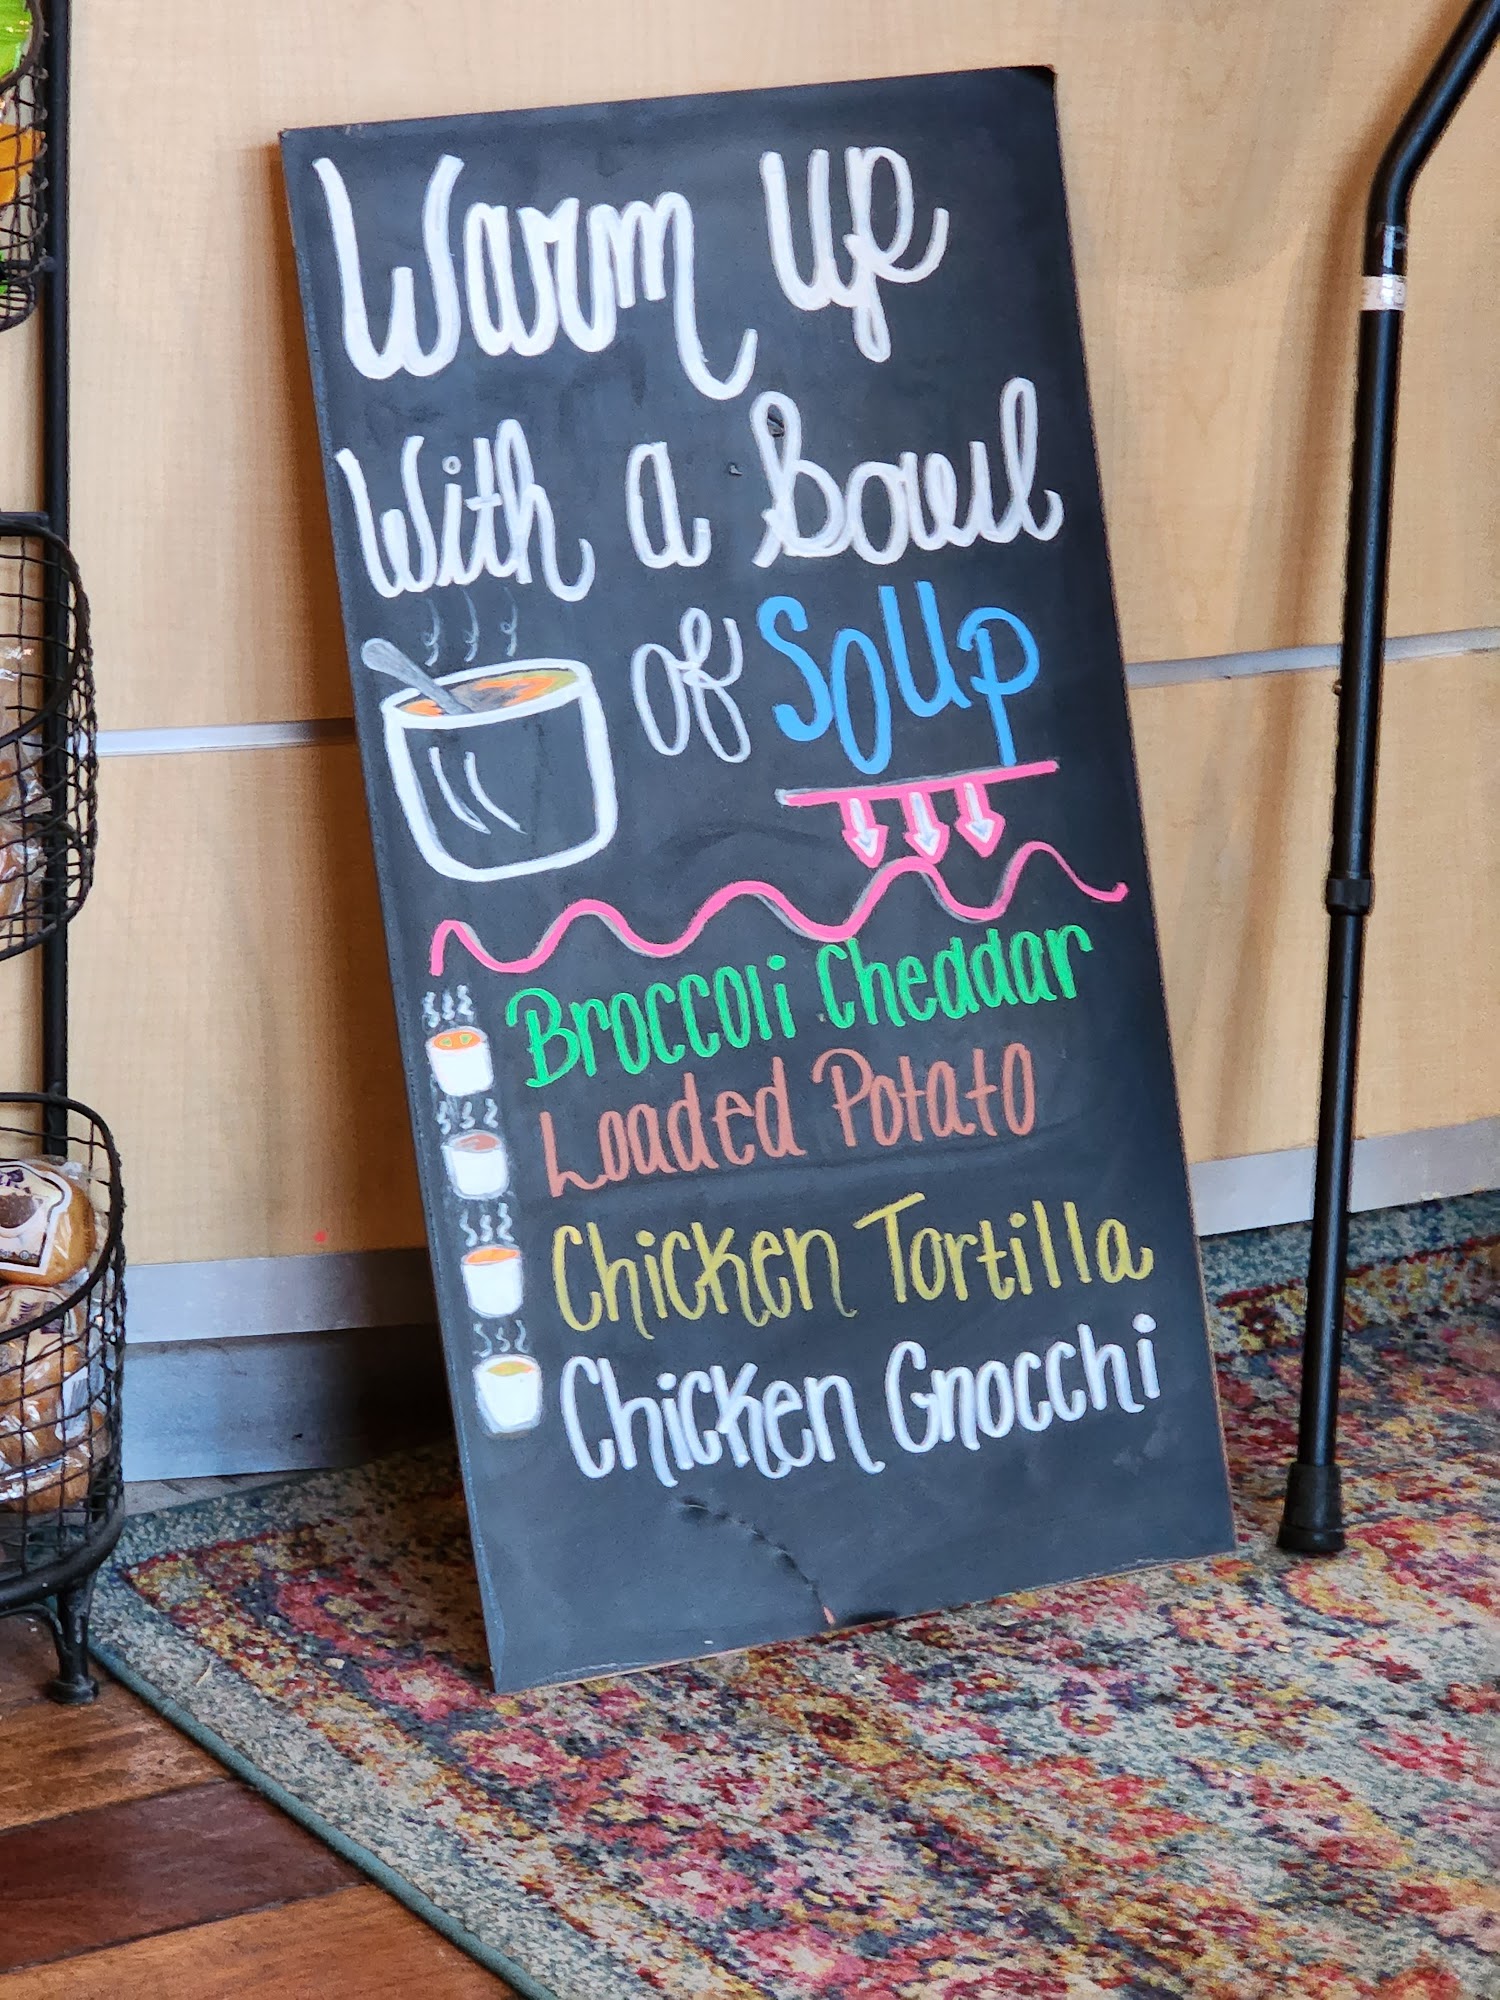 Warm Up
With a Bowl
of Soup
Broccoli Cheddar
Loaded Potato
Chicken Tortilla
Chicken Gnocchi